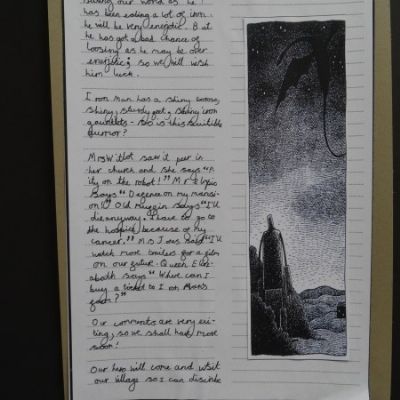 our world as he
has been eating a lot of iron.
he will be very energetic. But
he has got a bad chance of
loosing as he may be over
energetic; so we will wish
him luck.
Iron Man has a shiny
shiny, sturdy shiny iron
gauntlets - so is this suitible
armor?
Mrs Witlot saw it peer in
her church and she says "
ity on the robot!" Mr
says "Degence on my mansi-
on!" Old Muggin says "I'll
die anyway. I have to go to
the hospice because of my
cancer." Ms Jones said "I'll
watch more trailers for a film
on our future. Queen Eliz-
abath says "Where can I
buy a ticket to Iron Mans
gam?"
Our comments are very exi-
ting, so we shall have more
soon!
Our hero will come and visit
our village so I can discribe